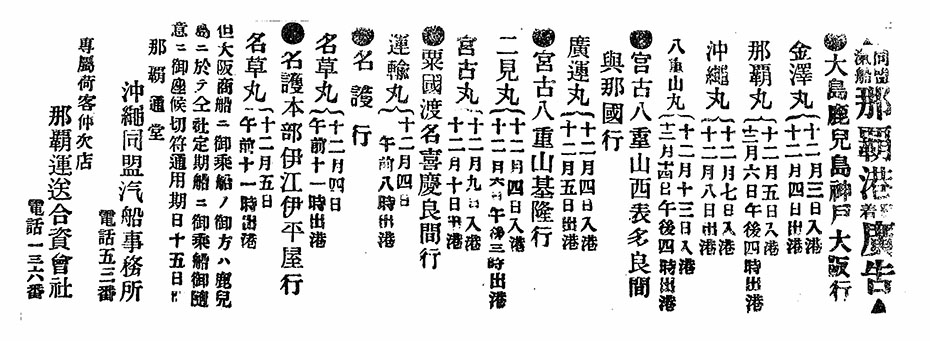 同盟汽船那覇港發着廣告
●大島鹿兒島神戸大阪行
金澤丸 十二月三日入港
十二月四日出港
那覇丸 十二月五日入港
十二月六日午後四時出港
沖繩丸 十二月七日入港
十二月八日出港
八重山丸 十二月十三日入港
十二月十四日午後四時出港
●宮古八重山西表多良間
與那國行
廣運丸 十二月四日入港
十二月五日出港
●宮古八重山基隆行
二見丸 十二月四日入港
十二月六日午後三時出港
宮古丸 十二月九日入港
十二月十日出港
●粟國渡名喜慶良間行
運輸丸 十二月四日
午前八時出港
●名護行
名草丸 十二月四日
午前十一時出港
●名護本部伊江伊平屋行
名草丸 十二月五日
午前十一時出港
但大阪商船ニ御乘船ノ御方ハ鹿兒
島ニ於テ仝社定期船ニ御乘船御隨
意ニ御座候切符通用期日十五日間
那覇通堂
沖繩同盟汽船事務所
電話五三番
專屬荷客仲次店
那覇運送合資會社
電話一三六番